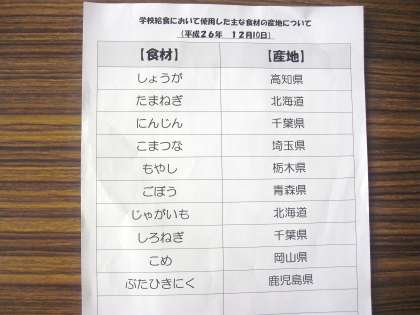 学校給食において使用した主な食材の産地について
(平成26年 12月10日)
【食材】 【産地】
しょうが 高知県
たまねぎ 北海道
にんじん 千葉県
こまつな 埼玉県
もやし 栃木県
ごぼう 青森県
じゃがいも 北海道
しろねぎ 千葉県
こめ 岡山県
ぶたひきにく 鹿児島県